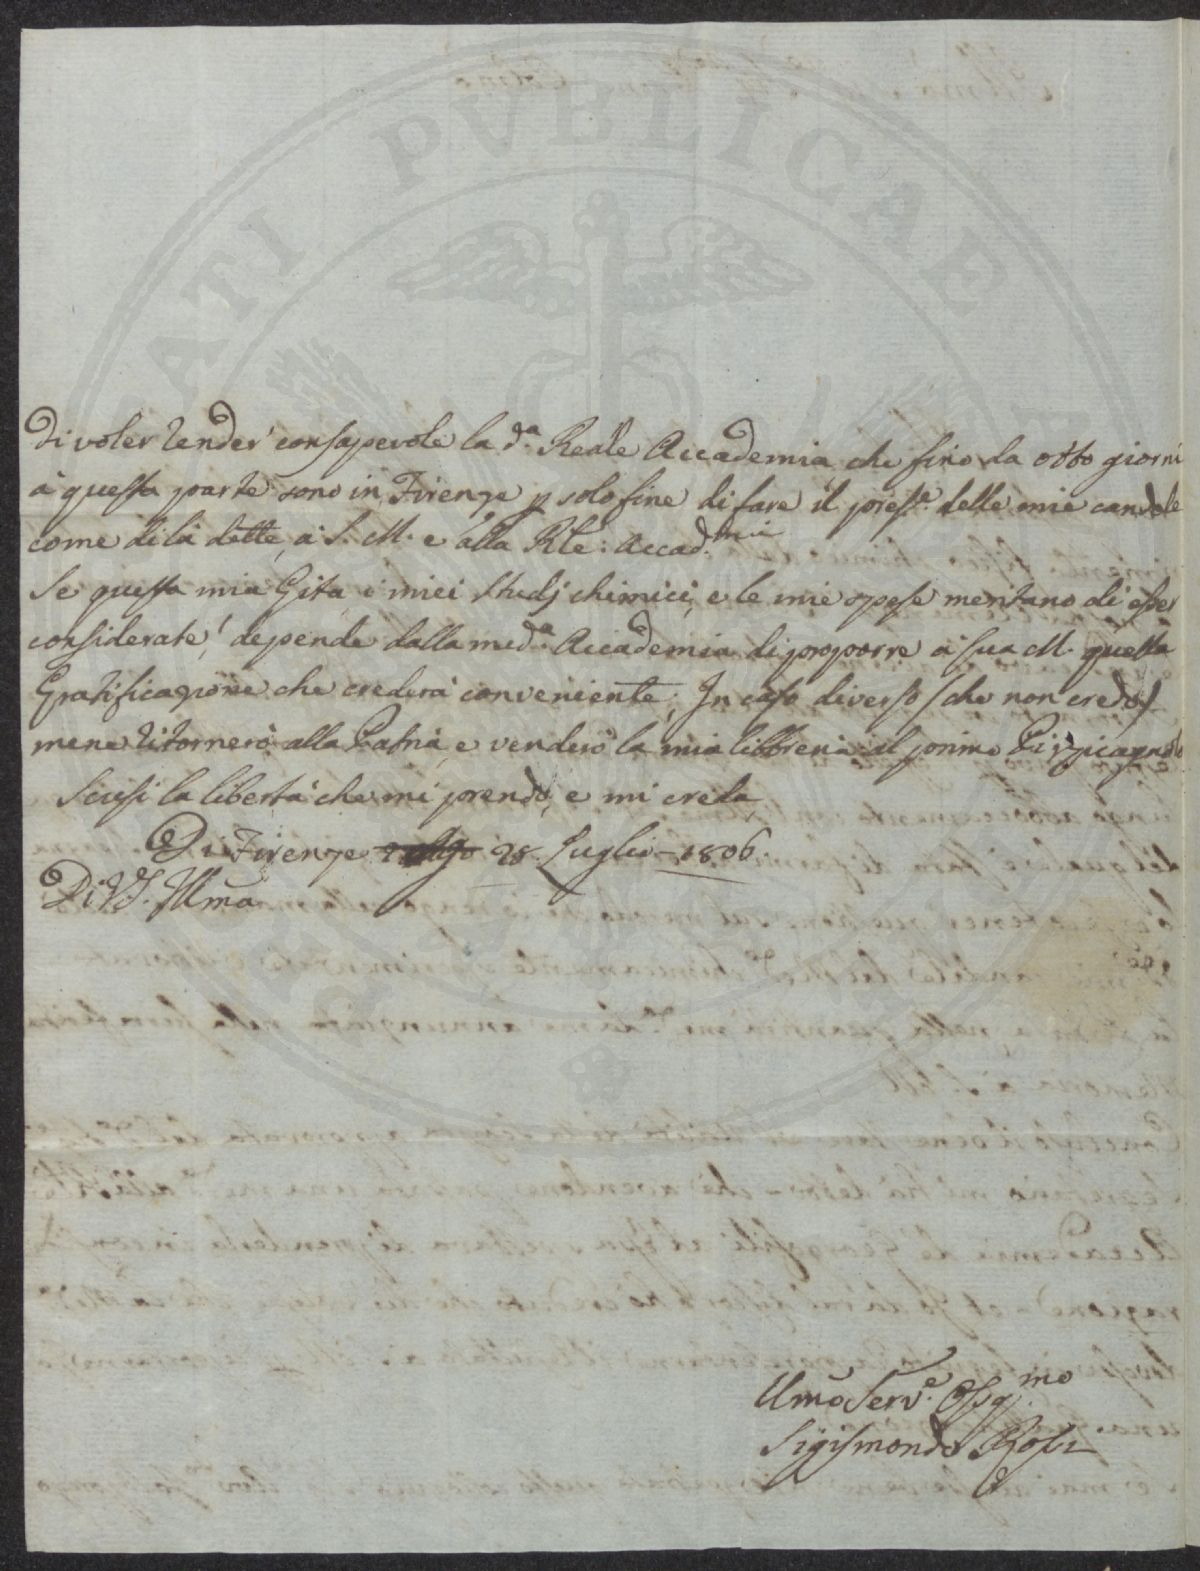 di voler render' consapevole la d.a Reale Accademia che fino da otto giorni
à questa parte sono in Firenze p solo fine di fare il pres.e delle mie candele
come di là dette, a S. M. e alla Rle: Accad.mia
Se questa mia Gita, i miei Studj chimici, e le mie spese meritano di esser
considerate, depende dalla med.a Accademia di proporre a Sua M. quella
Gratificazione che crederà conveniente; In caso diverso (che non credo)
mene ritornerò alla Patria, e venderò la mia libbreria al primo Pizzicagnolo
Scusi la libertà che mi prendo, e mi creda
Di Firenze 28. Luglio 1806.
Di V.S. Illma
Umo Serv.e Ossq.mo
Sigismondo Rossi
PVBLICAE